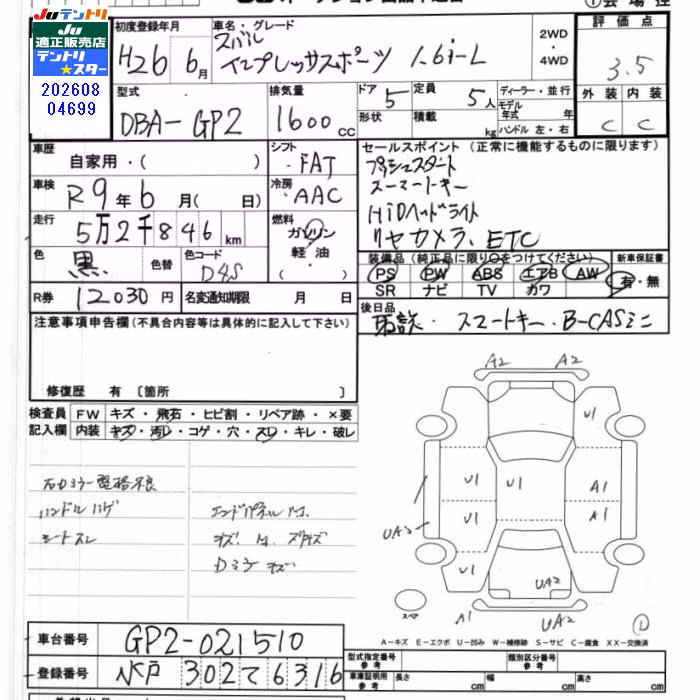 Juテントリ
Ju
適正販売店
テントリ
★スター
202608
04699
初度登録年月
H26 6月
車名・グレード
スバル
インプレッサスポーツ 1.6i-L
2WD
・
4WD
評価点
3.5
外装 内装
C C
型式
DBA-GP2
排気量
1600cc
ドア
5
定員
5人
形状
積載
kg
ディーラー・並行
モデル年式 年
ハンドル 左・右
車歴
自家用・( )
シフト
FAT
セールスポイント(正常に機能するものに限ります)
プッシュスタート
スマートキー
HiDヘッドライト
リヤカメラ、ETC
車検
R9年6月( 日)
冷房
AAC
走行
5万2千846km
燃料
ガソリン
軽油
・
色
黒
色替
色コード
D4S
装備品(純正品に限り○をつけてください)
PS PW ABS エアB AW
SR ナビ TV カワ
新車保証書
有・無
R券
12030円
名変通知期限 月 日
後日品
取説・スマートキー・B-CASミニ
注意事項申告欄(不具合内容等は具体的に記入して下さい)
修復歴 有 〔箇所 〕
検査員
記入欄
FW キズ・飛石・ヒビ割・リペア跡・×要
内装 キズ・汚レ・コゲ・穴・スレ・キレ・破レ
右カミラー電格不良
ハンドルハゲ
シートスレ
エンドパネルM.
キズ.
Dミラーキズ
A2 A2
U1
U1 U1 A1
U1 A1
UA3
U1 UA2
A1 UA2
スペア
①
A-キズ E-エクボ U-凹み W-補修跡 S-サビ C-腐食 XX-交換済
車台番号
GP2-021510
登録番号
水戸 302て6316
型式指定番号
参考
類別区分番号
参考
車庫証明用
参考
長さ cm 幅 cm 高さ cm